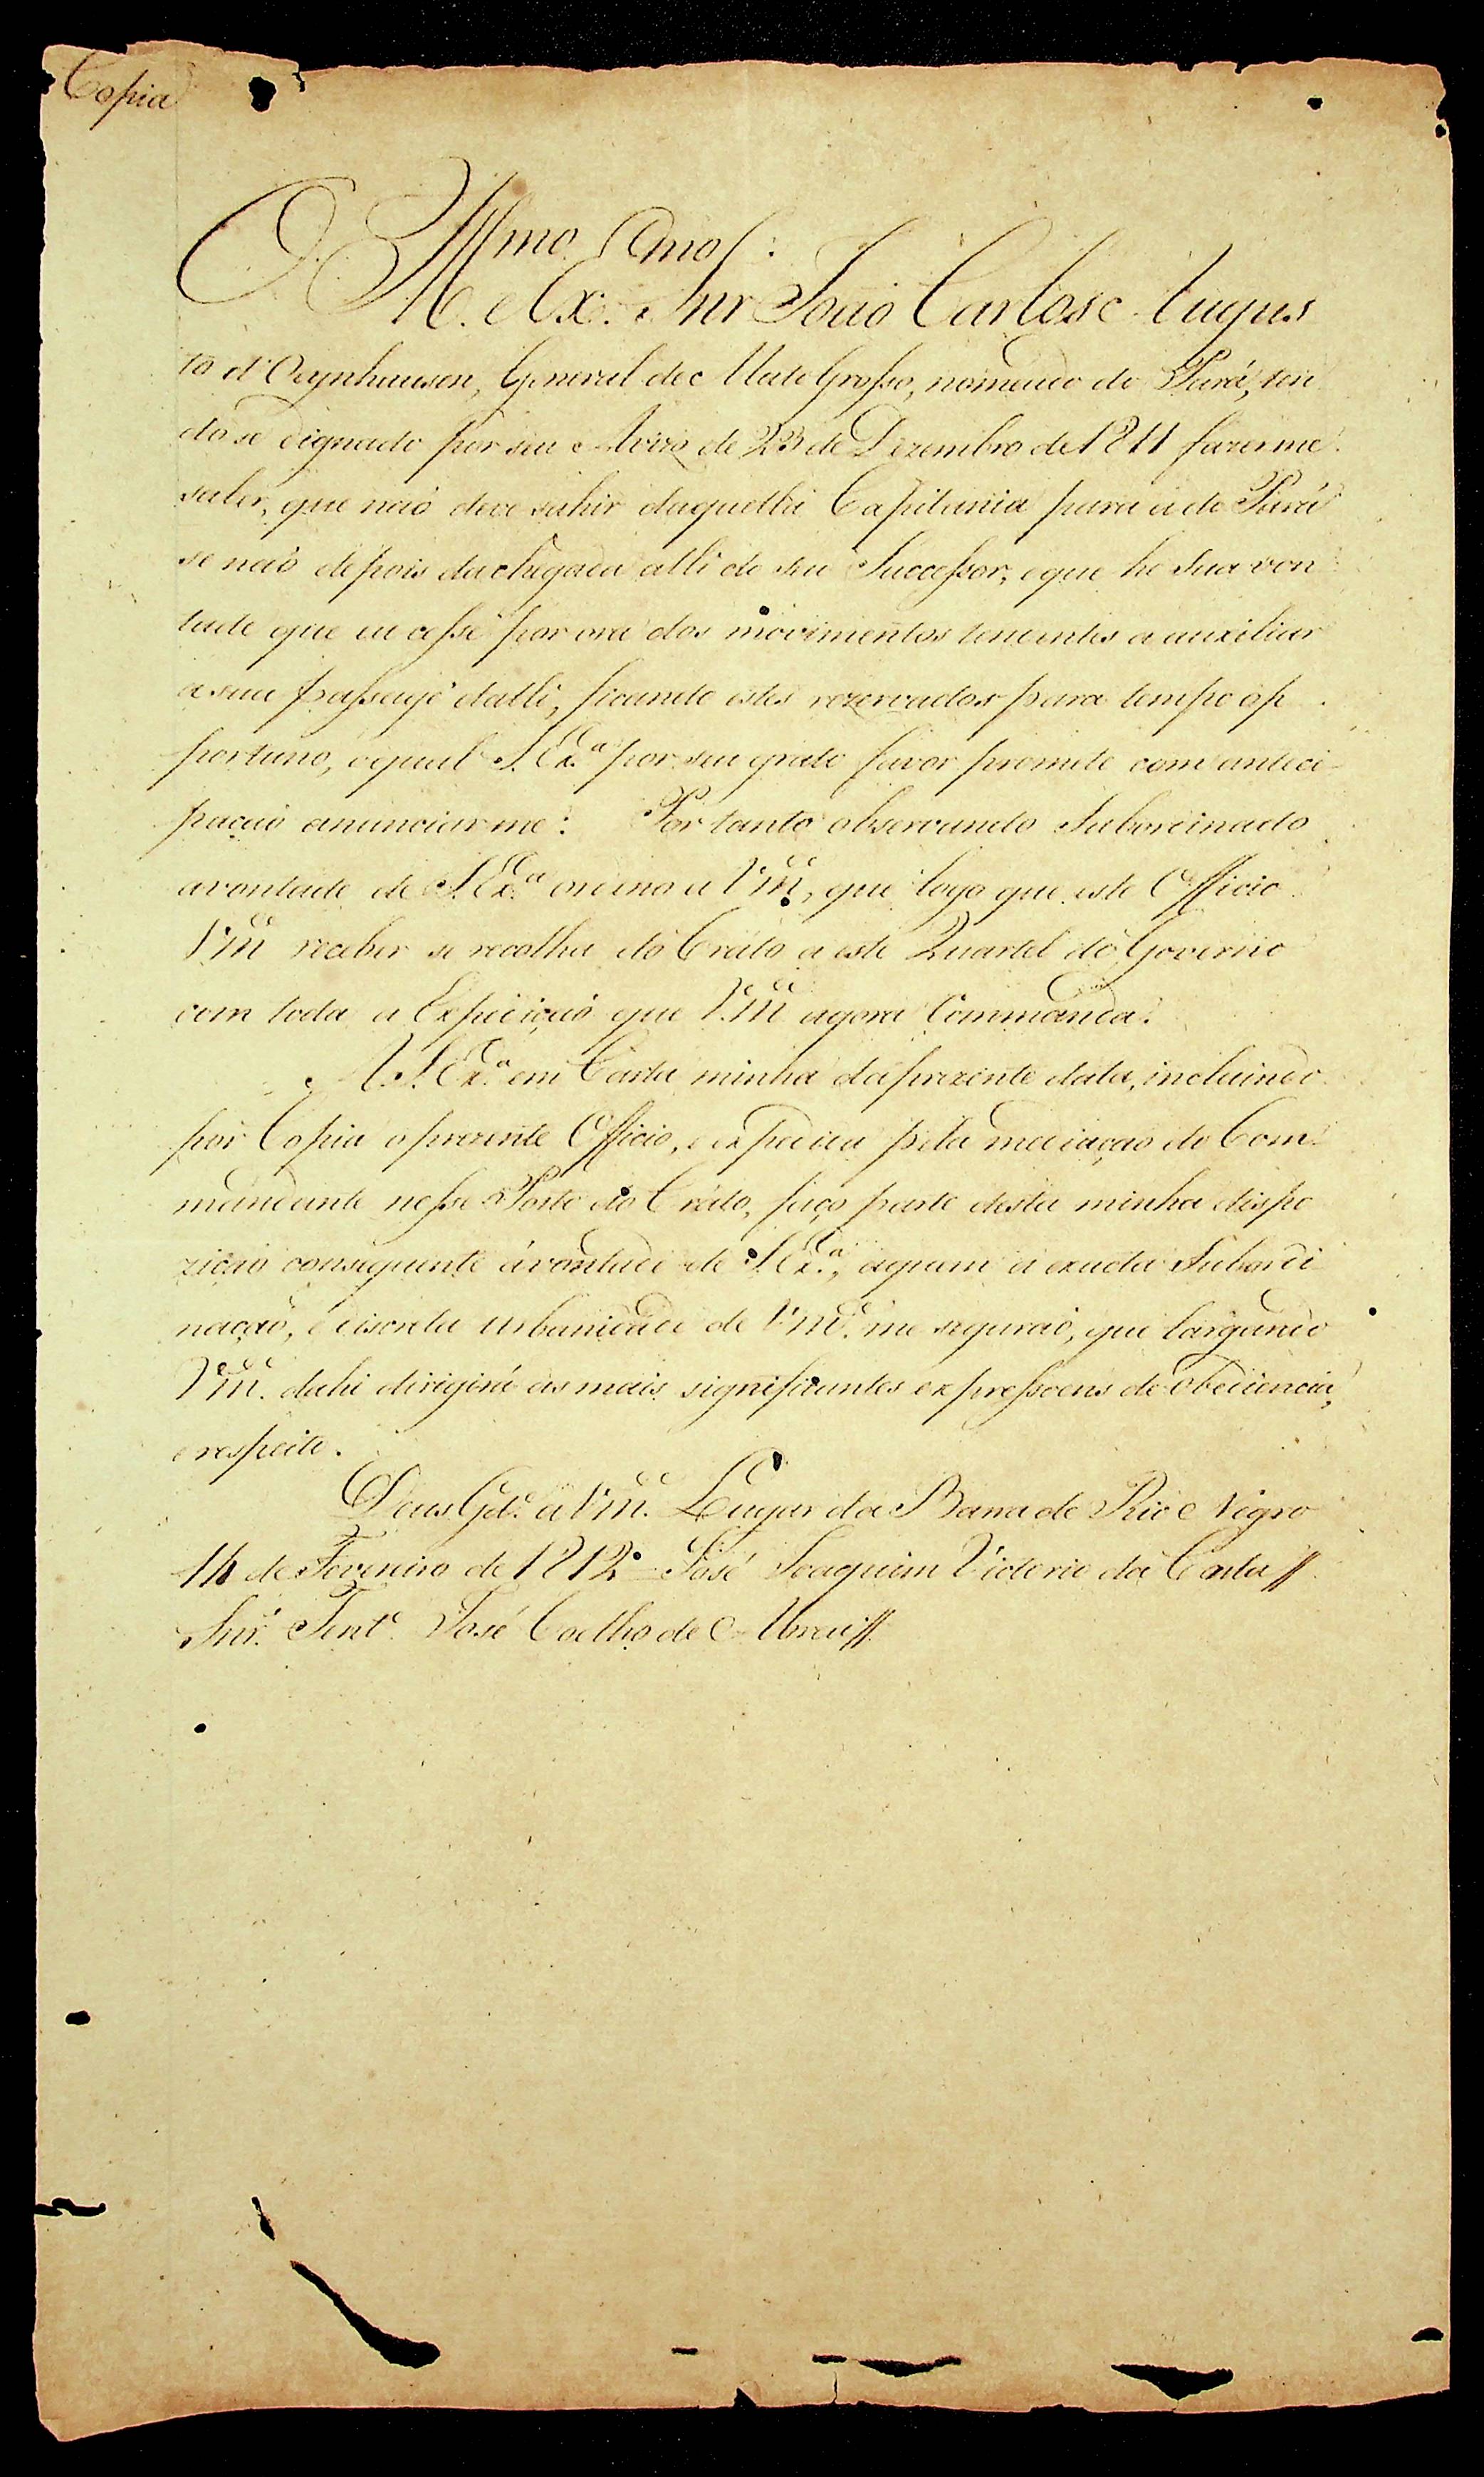 Copia
O Illmo. Exmo. Snr João Carlos Augus
to d'Oeynhausen, General de Mato Grosso, nomeado do Pará, ten
dose dignado por seu Avizo de 23 de Dezembro de 1811 fazerme
saber, que naõ deve sahir daquella Capitania para a do Pará
se naõ depois da chegada alli de seu Successor, e que he sua von
tade que eu cesse por ora dos movimentos tendentes a auxiliar
a sua passage dalli, ficando estes rezervados para tempo op
portuno, o qual S. Exª por seu grato favor promete com anteci
paçaõ anunciarme: Por tanto observando Subordinado
a vontade de S. Exª. ordeno a Vmce, que logo que este Officio
Vmce receber se recolha do Crato a este Quartel do Governo
com toda a Expediçaõ que Vmce agora Commanda.
A S. Exª. em Carta minha da prezente data, incluindo
por Copia o prezente Officio, e expedida pela mediaçaõ do Com
mandante nesse Posto do Crato, faço parte desta minha dispo
ziçaõ conseguinte á vontade de S. Exª., a quem a exacta Subordi
naçaõ, e discreta urbanidade de Vmce. me seguraõ, que largando
Vmce. dahi dirigirá as mais significantes expressoens de obediencia,
e respeito.
Deus Gde. a Vmce. Lugar da Barra do Rio Negro
14 de Fevereiro de 1812 = José Joaquim Victorio da Costa //
Snr. Tente. José Coelho de Abreu //